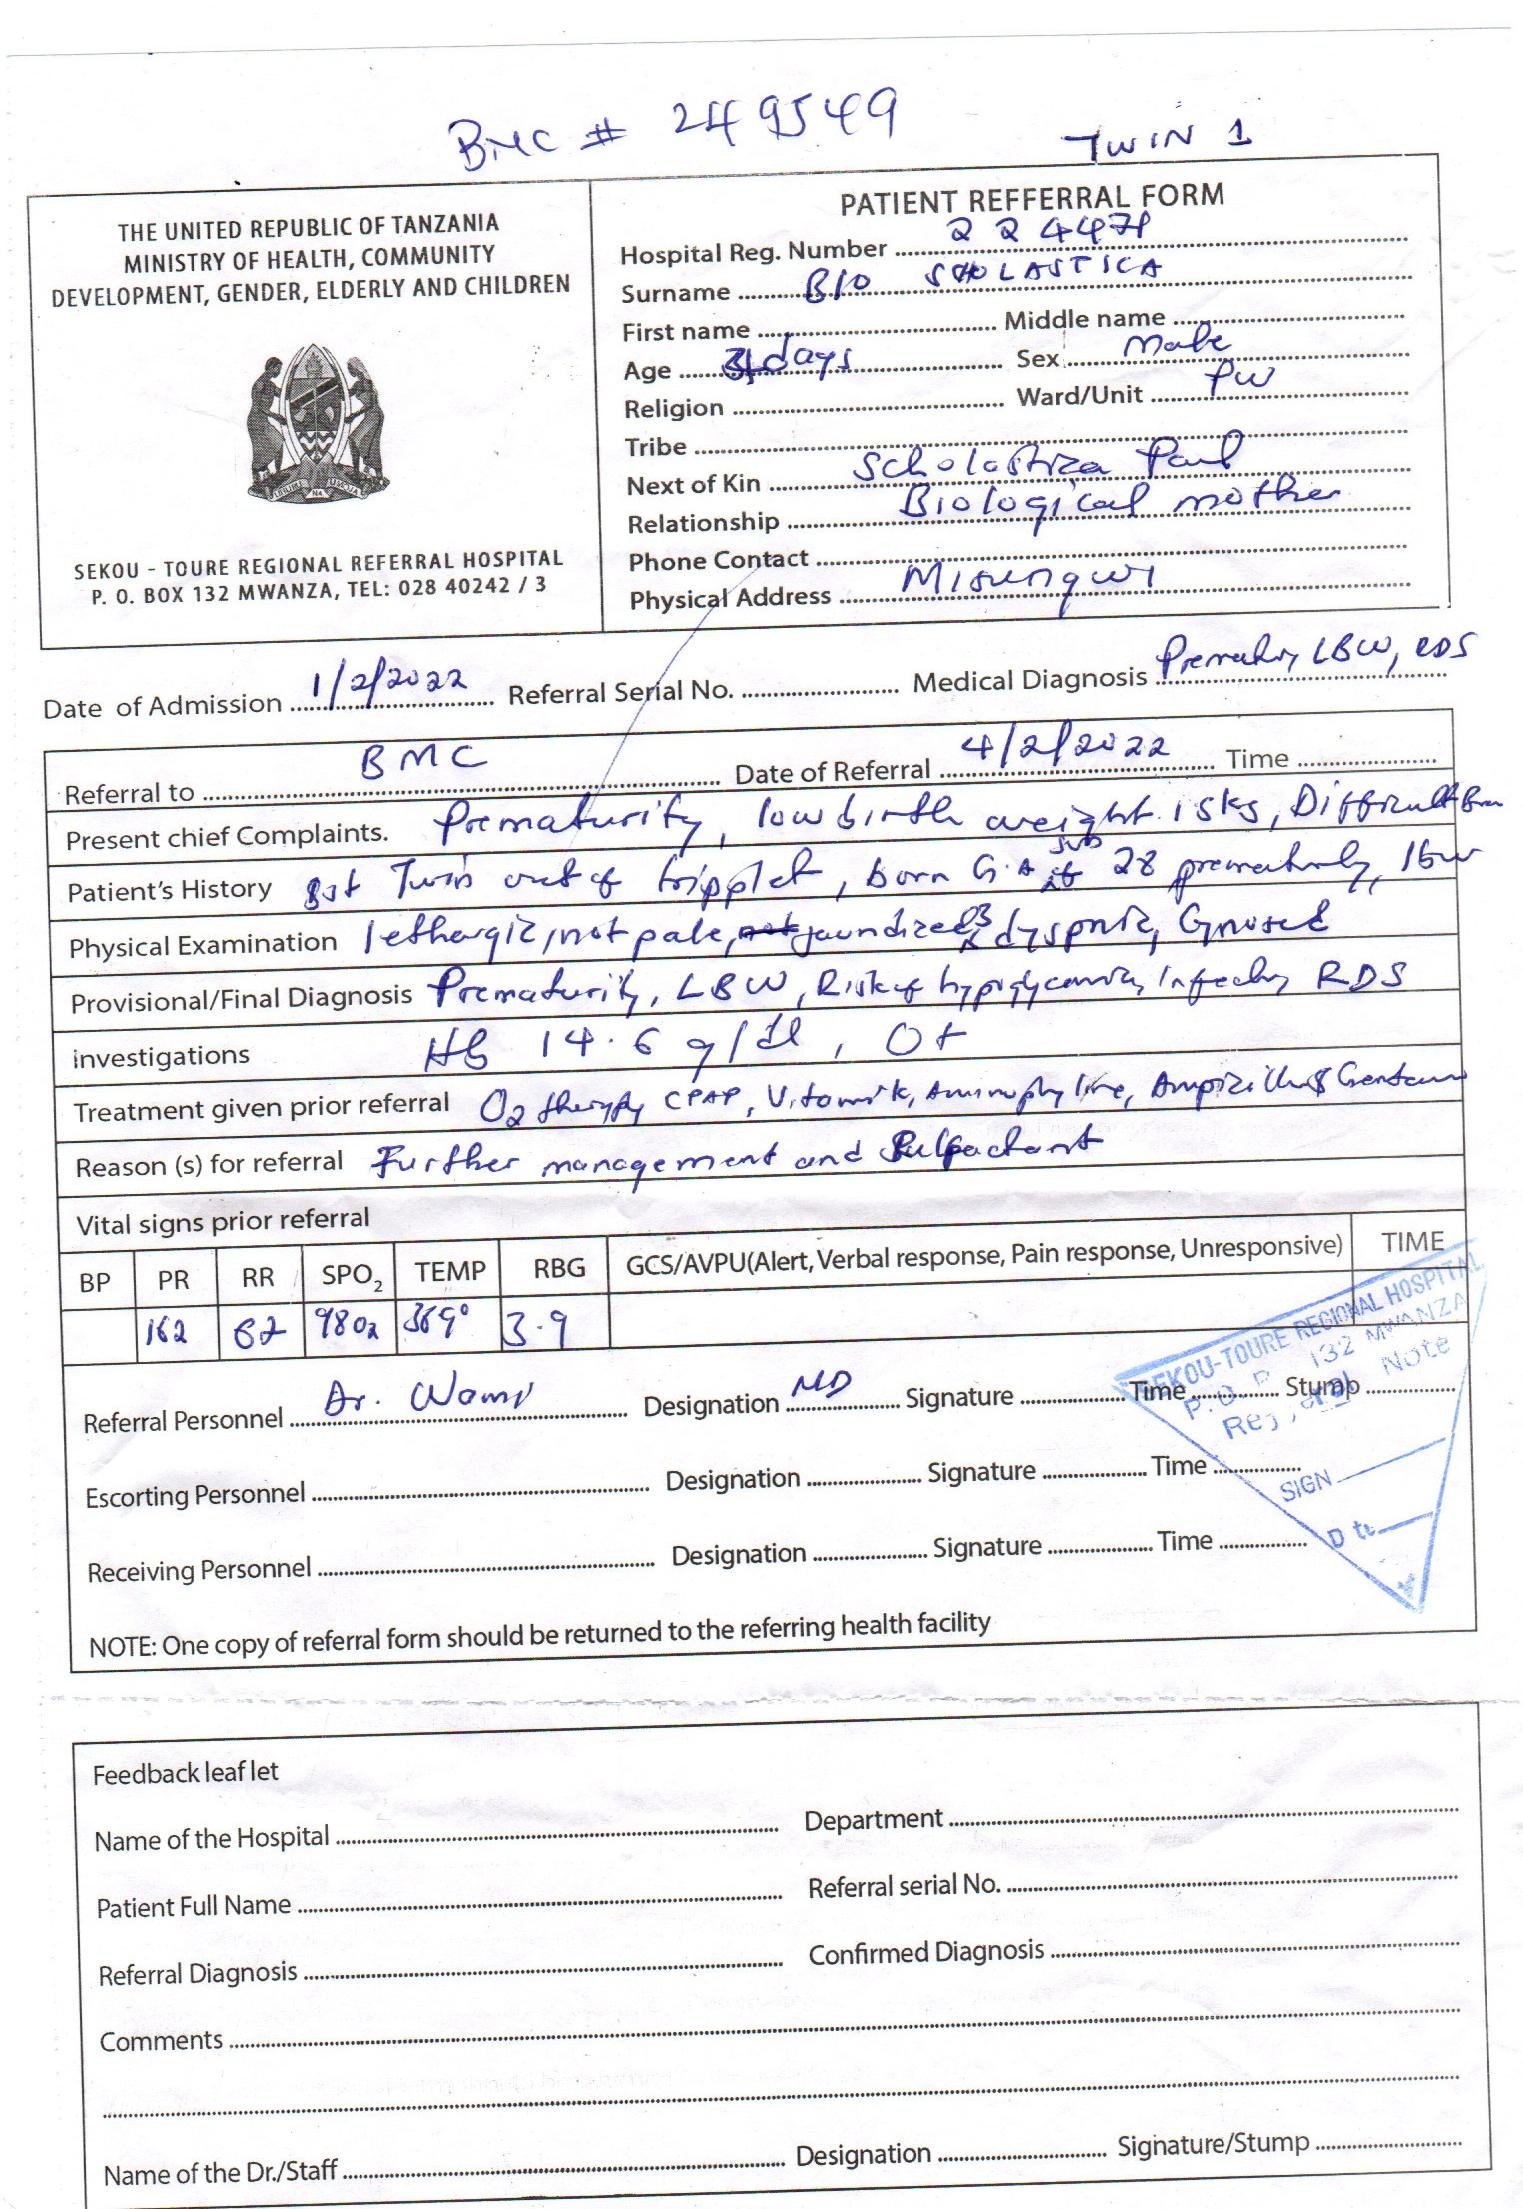 BMC # 249549
TWIN 1
THE UNITED REPUBLIC OF TANZANIA
MINISTRY OF HEALTH, COMMUNITY
DEVELOPMENT, GENDER, ELDERLY AND CHILDREN
UHURU NA UMOJA
SEKOU - TOURE REGIONAL REFERRAL HOSPITAL
P. O. BOX 132 MWANZA, TEL: 028 40242 / 3
PATIENT REFFERRAL FORM
Hospital Reg. Number 224471
Surname B/O SCHOLASTICA
First name Middle name
Age days Sex male
Religion Ward/Unit PW
Tribe
Next of Kin Scholastica Paul
Relationship Biological mother
Phone Contact
Physical Address Misungwi
Date of Admission 1/2/2022 Referral Serial No. Medical Diagnosis Prematurity LBW, RDS
Referral to BMC Date of Referral 4/2/2022 Time
Present chief Complaints. Prematurity, low birth weight 1.5kg, Difficult
Patient's History 1st Twin out of tripplet, born G.A sub 28 prematurely, lbw
Physical Examination lethargic, not pale, not jaundiced, dyspnic, Cynosed
Provisional/Final Diagnosis Prematurity, LBW, Risk of hypoglycamia, Infection RDS
investigations Hb 14.6 g/dl, O+
Treatment given prior referral O2 therapy CPAP, Vitamin K, Aminophyline, Ampicillin & Gentam
Reason (s) for referral Further management and Sulfactant
Vital signs prior referral
BP PR RR SPO2 TEMP RBG GCS/AVPU(Alert, Verbal response, Pain response, Unresponsive) TIME
162 62 98O2 36.9° 3.9
Referral Personnel Dr. Wami Designation MD Signature Time Stump
Escorting Personnel Designation Signature Time
Receiving Personnel Designation Signature Time
SEKOU-TOURE REGIONAL HOSPITAL
P.O. 132 MWANZA
Note
SIGN
NOTE: One copy of referral form should be returned to the referring health facility
Feedback leaf let
Name of the Hospital Department
Patient Full Name Referral serial No.
Referral Diagnosis Confirmed Diagnosis
Comments
Name of the Dr./Staff Designation Signature/Stump